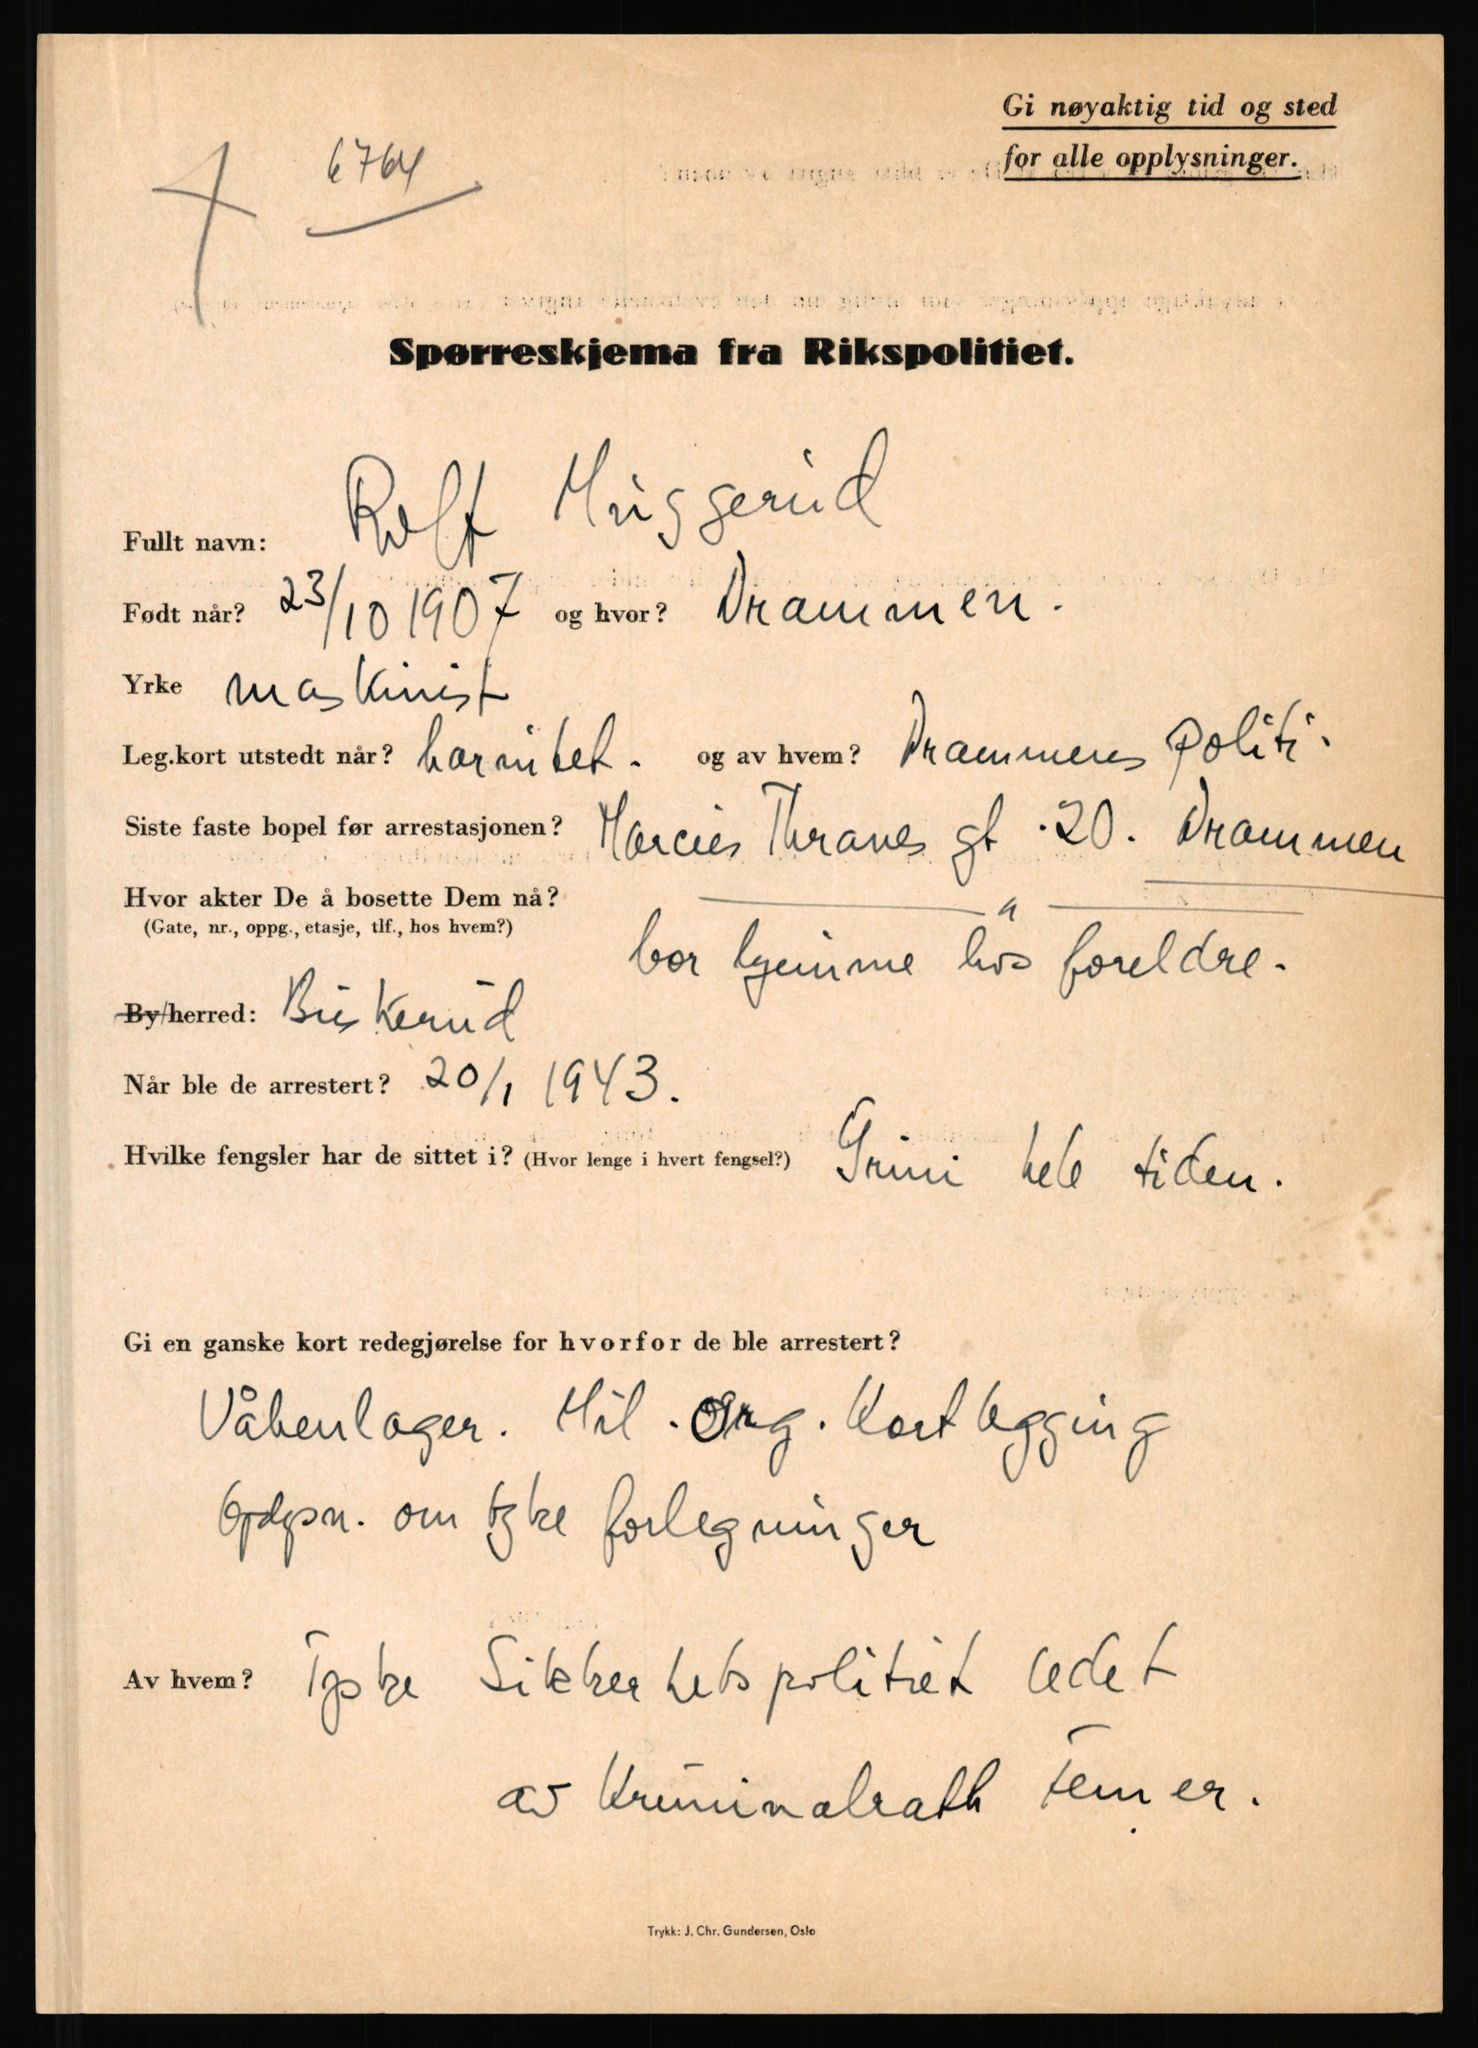 Gi nøyaktig tid og sted
for alle opplysninger.
6764
Spørreskjema fra Rikspolitiet.
Fullt navn: Rolf Muggerud
Født når? 23/10 1907 og hvor? Drammen.
Yrke maskinist
Leg.kort utstedt når? har intet. og av hvem? Drammens politi.
Siste faste bopel før arrestasjonen? Marcus Thranes gt. 20. Drammen
Hvor akter De å bosette Dem nå? — " —
(Gate, nr., oppg., etasje, tlf., hos hvem?) bor hjemme hos foreldre.
By/herred: Buskerud
Når ble de arrestert? 20/1 1943.
Hvilke fengsler har de sittet i? (Hvor lenge i hvert fengsel?) Grini hele tiden.
Gi en ganske kort redegjørelse for hvorfor de ble arrestert?
Våbenlager. Mil. Org. Kortlegging
om tyke forlegninger
Av hvem? Tyske Sikkerhetspolitiet ledet
av Kriminalrath
Trykk: J. Chr. Gundersen, Oslo